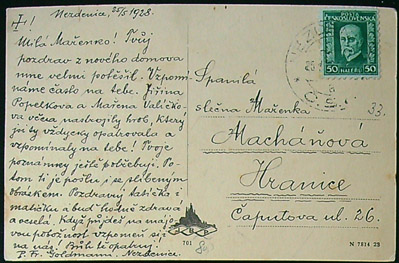 Nezdenica, 25/5 1928.
Milá Mařenko! Tvůj
pozdrav z nového domova
mne velmi potěšil. Vzpom
náme často na tebe. Jiřina
Popelkova a Mařena Valíčko-
va včera nastrojily hrob, který
jsi ty vždycky opatrovala a
vzpomínaly na tebe! Tvoje
poznámky ještě potřebuji. Po-
tom ti je pošlu i se slíbeným
obrázkem. Pozdravuj tatíčka i
matičku a buď hodně zdravá
a veselá! Když půjdeš na májo-
vou pobožnost vzpomeň si
na nás! Bůh tě opatruj!
P. Fr. Goldmann, Nezdenice.
POŠTA
ČESKOSLOVENSKÁ
50 HALÉŘŮ 50
slečna Mařenka
33.
Macháňová
Hranice
Čaputova ul. 26.
701
N 7814 23